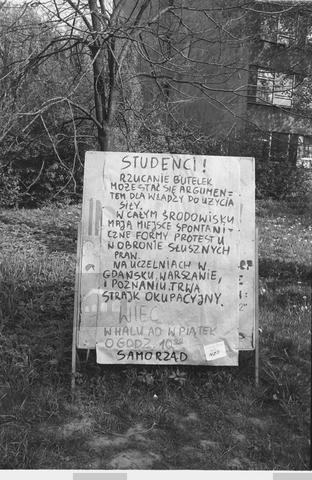 STUDENCI!
RZUCANIE BUTELEK
MOŻE STAĆ SIĘ ARGUMEN=
TEM DLA WŁADZY DO UŻYCIA
SIŁY.
W CAŁYM ŚRODOWISKU
MAJĄ MIEJSCE SPONTANI-
CZNE FORMY PROTESTU
W OBRONIE SŁUSZNYCH
PRAW.
NA UCZELNIACH W
GDAŃSKU, WARSZAWIE,
I POZNANIU TRWA
STRAJK OKUPACYJNY.
WIEC
W HALU AD W PIĄTEK
O GODZ. 10
SAMORZĄD